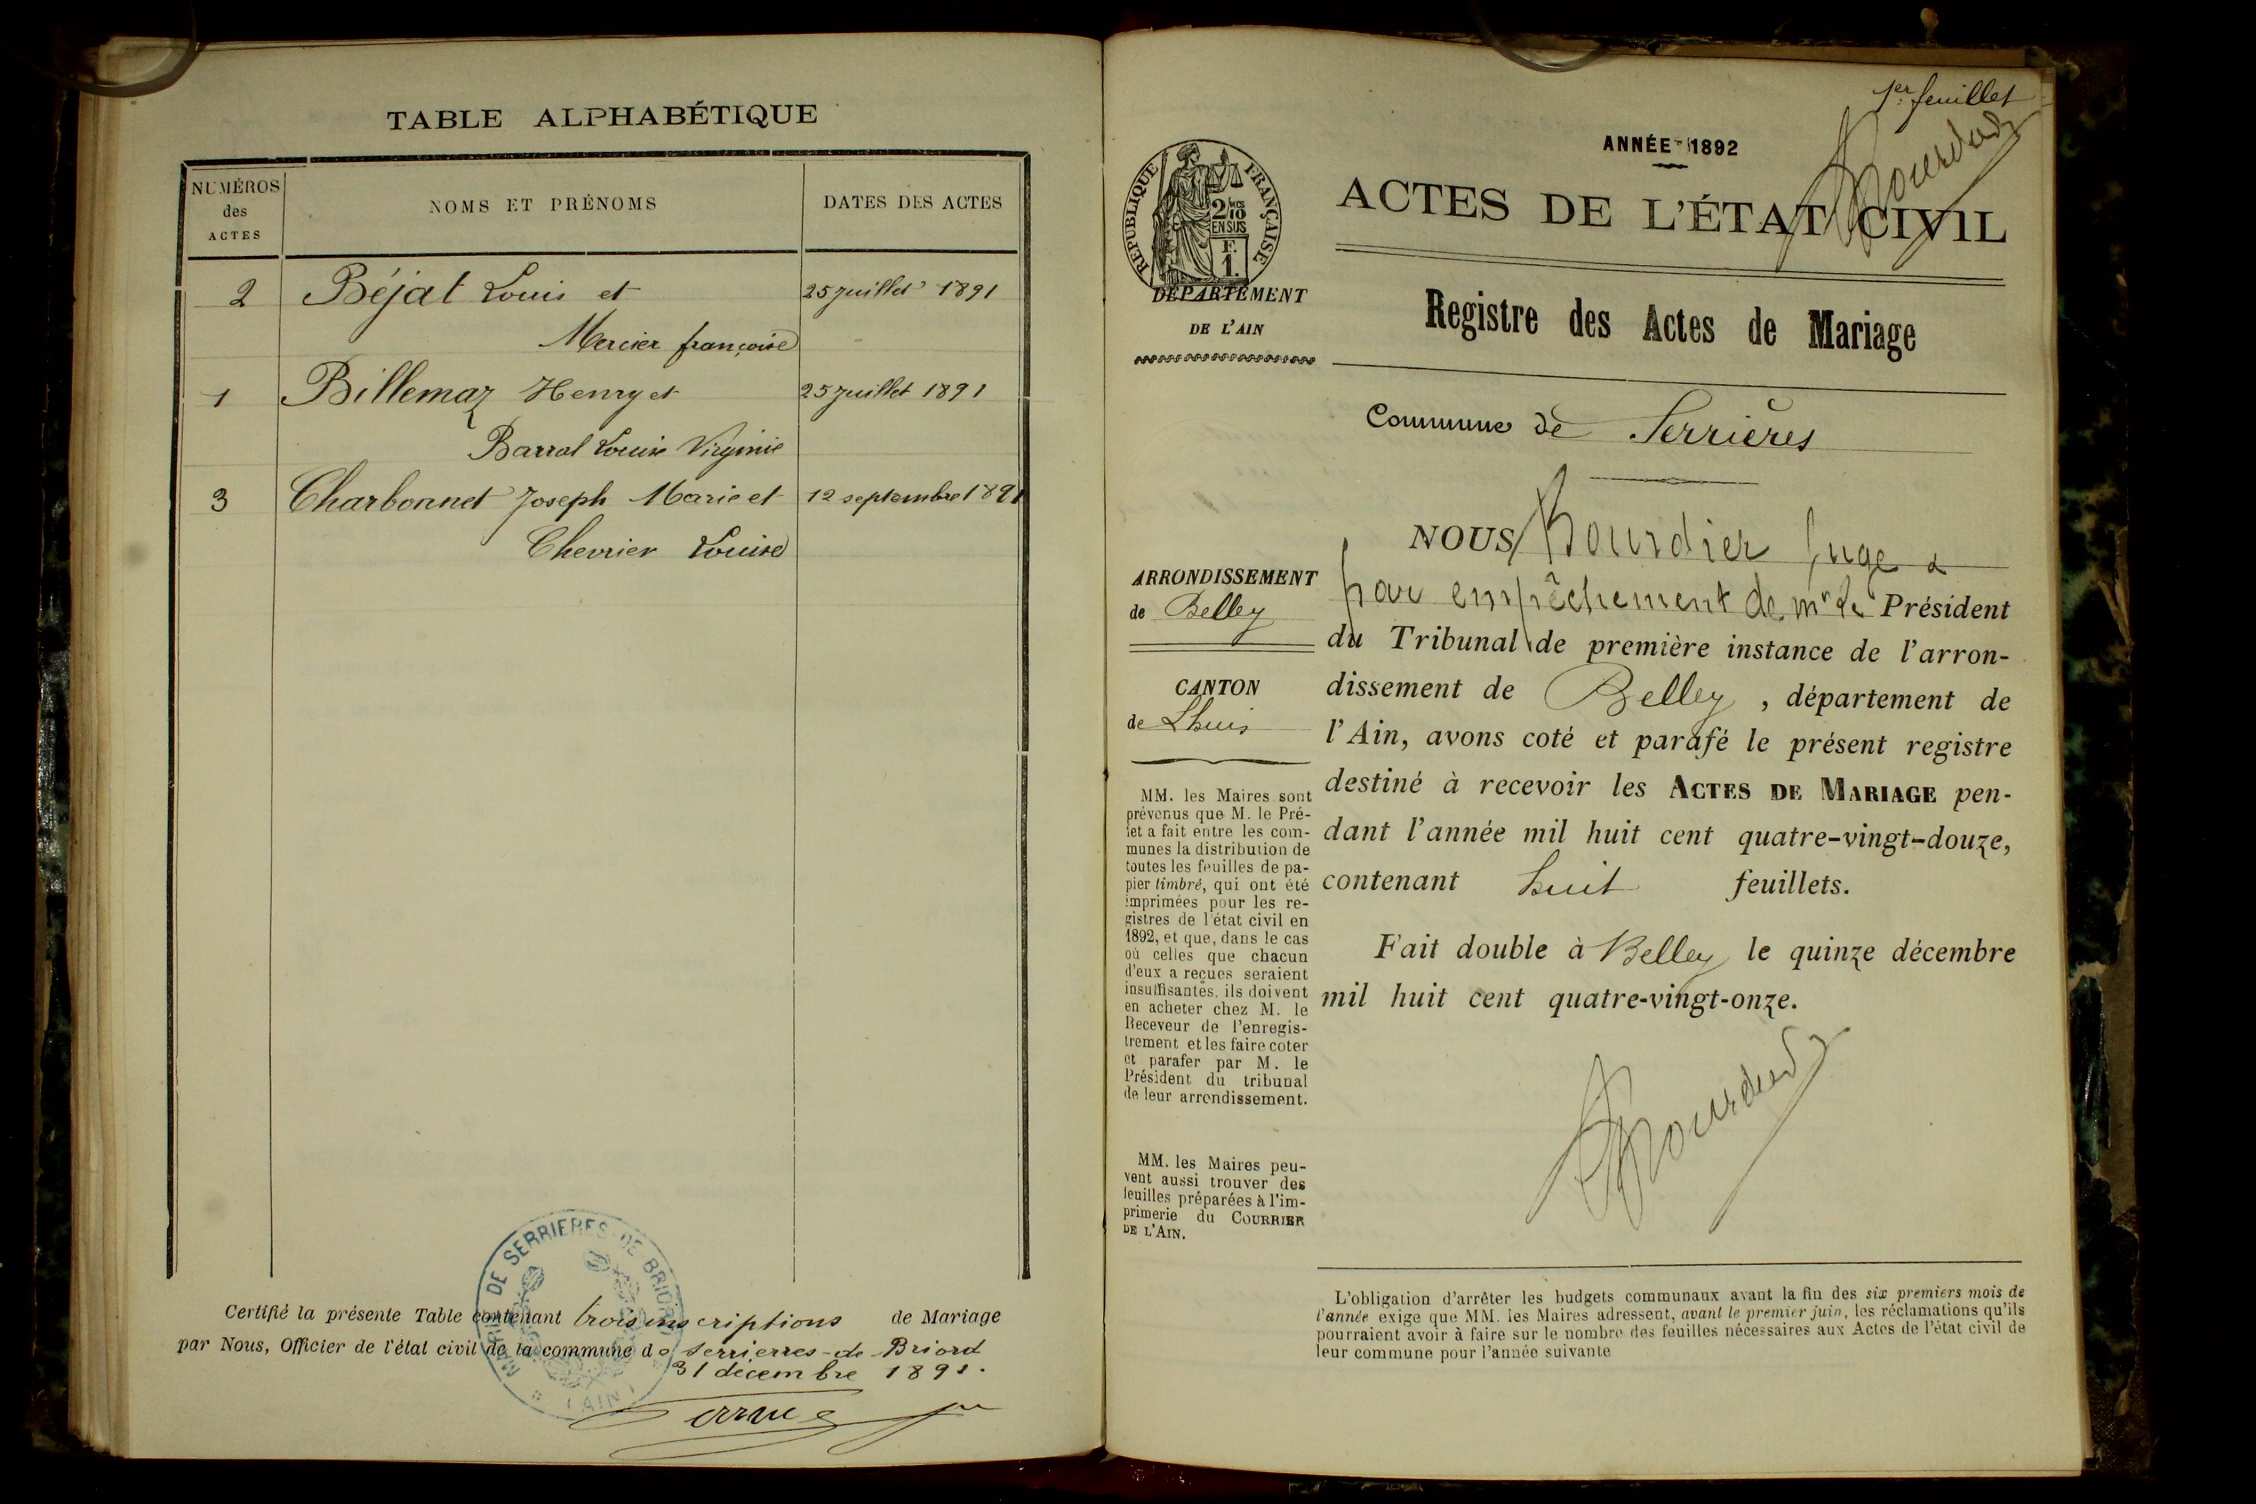 TABLE ALPHABÉTIQUE
NUMÉROS
des
ACTES
NOMS ET PRÉNOMS
DATES DES ACTES
2 Béjat Louis et 25 juillet 1891
Mercier françoise
1 Billemaz Henry et 25 juillet 1891
Barral Louise Virginie
3 Charbonnet Joseph Marie et 12 septembre 1891
Chevrier Louise
Certifié la présente Table contenant trois inscriptions de Mariage
par Nous, Officier de l'état civil de la commune de Serrierres-de-Briord
31 décembre 1891.
MAIRIE DE SERRIERES-DE-BRIORD
(AIN)
1er feuillet
ANNÉE 1892
RÉPUBLIQUE FRANÇAISE
2/10
EN SUS
F.
1.
ACTES DE L'ÉTAT CIVIL
DÉPARTEMENT
DE L'AIN
Registre des Actes de Mariage
Commune de Serrières
ARRONDISSEMENT
de Belley
CANTON
de Lhuis
MM. les Maires sont
prévenus que M. le Pré-
fet a fait entre les com-
munes la distribution de
toutes les feuilles de pa-
pier timbré, qui ont été
imprimées pour les re-
gistres de l'état civil en
1892, et que, dans le cas
où celles que chacun
d'eux a reçues seraient
insuffisantes, ils doivent
en acheter chez M. le
Receveur de l'enregis-
trement et les faire coter
et parafer par M. le
Président du tribunal
de leur arrondissement.
MM. les Maires peu-
vent aussi trouver des
feuilles préparées à l'im-
primerie du COURRIER
DE L'AIN.
NOUS Bourdier Juge
par empêchement de Mr le Président
du Tribunal de première instance de l'arron-
dissement de Belley, département de
l'Ain, avons coté et parafé le présent registre
destiné à recevoir les ACTES DE MARIAGE pen-
dant l'année mil huit cent quatre-vingt-douze,
contenant huit feuillets.
Fait double à Belley le quinze décembre
mil huit cent quatre-vingt-onze.
L'obligation d'arrêter les budgets communaux avant la fin des six premiers mois de
l'année exige que MM. les Maires adressent, avant le premier juin, les réclamations qu'ils
pourraient avoir à faire sur le nombre des feuilles nécessaires aux Actes de l'état civil de
leur commune pour l'année suivante